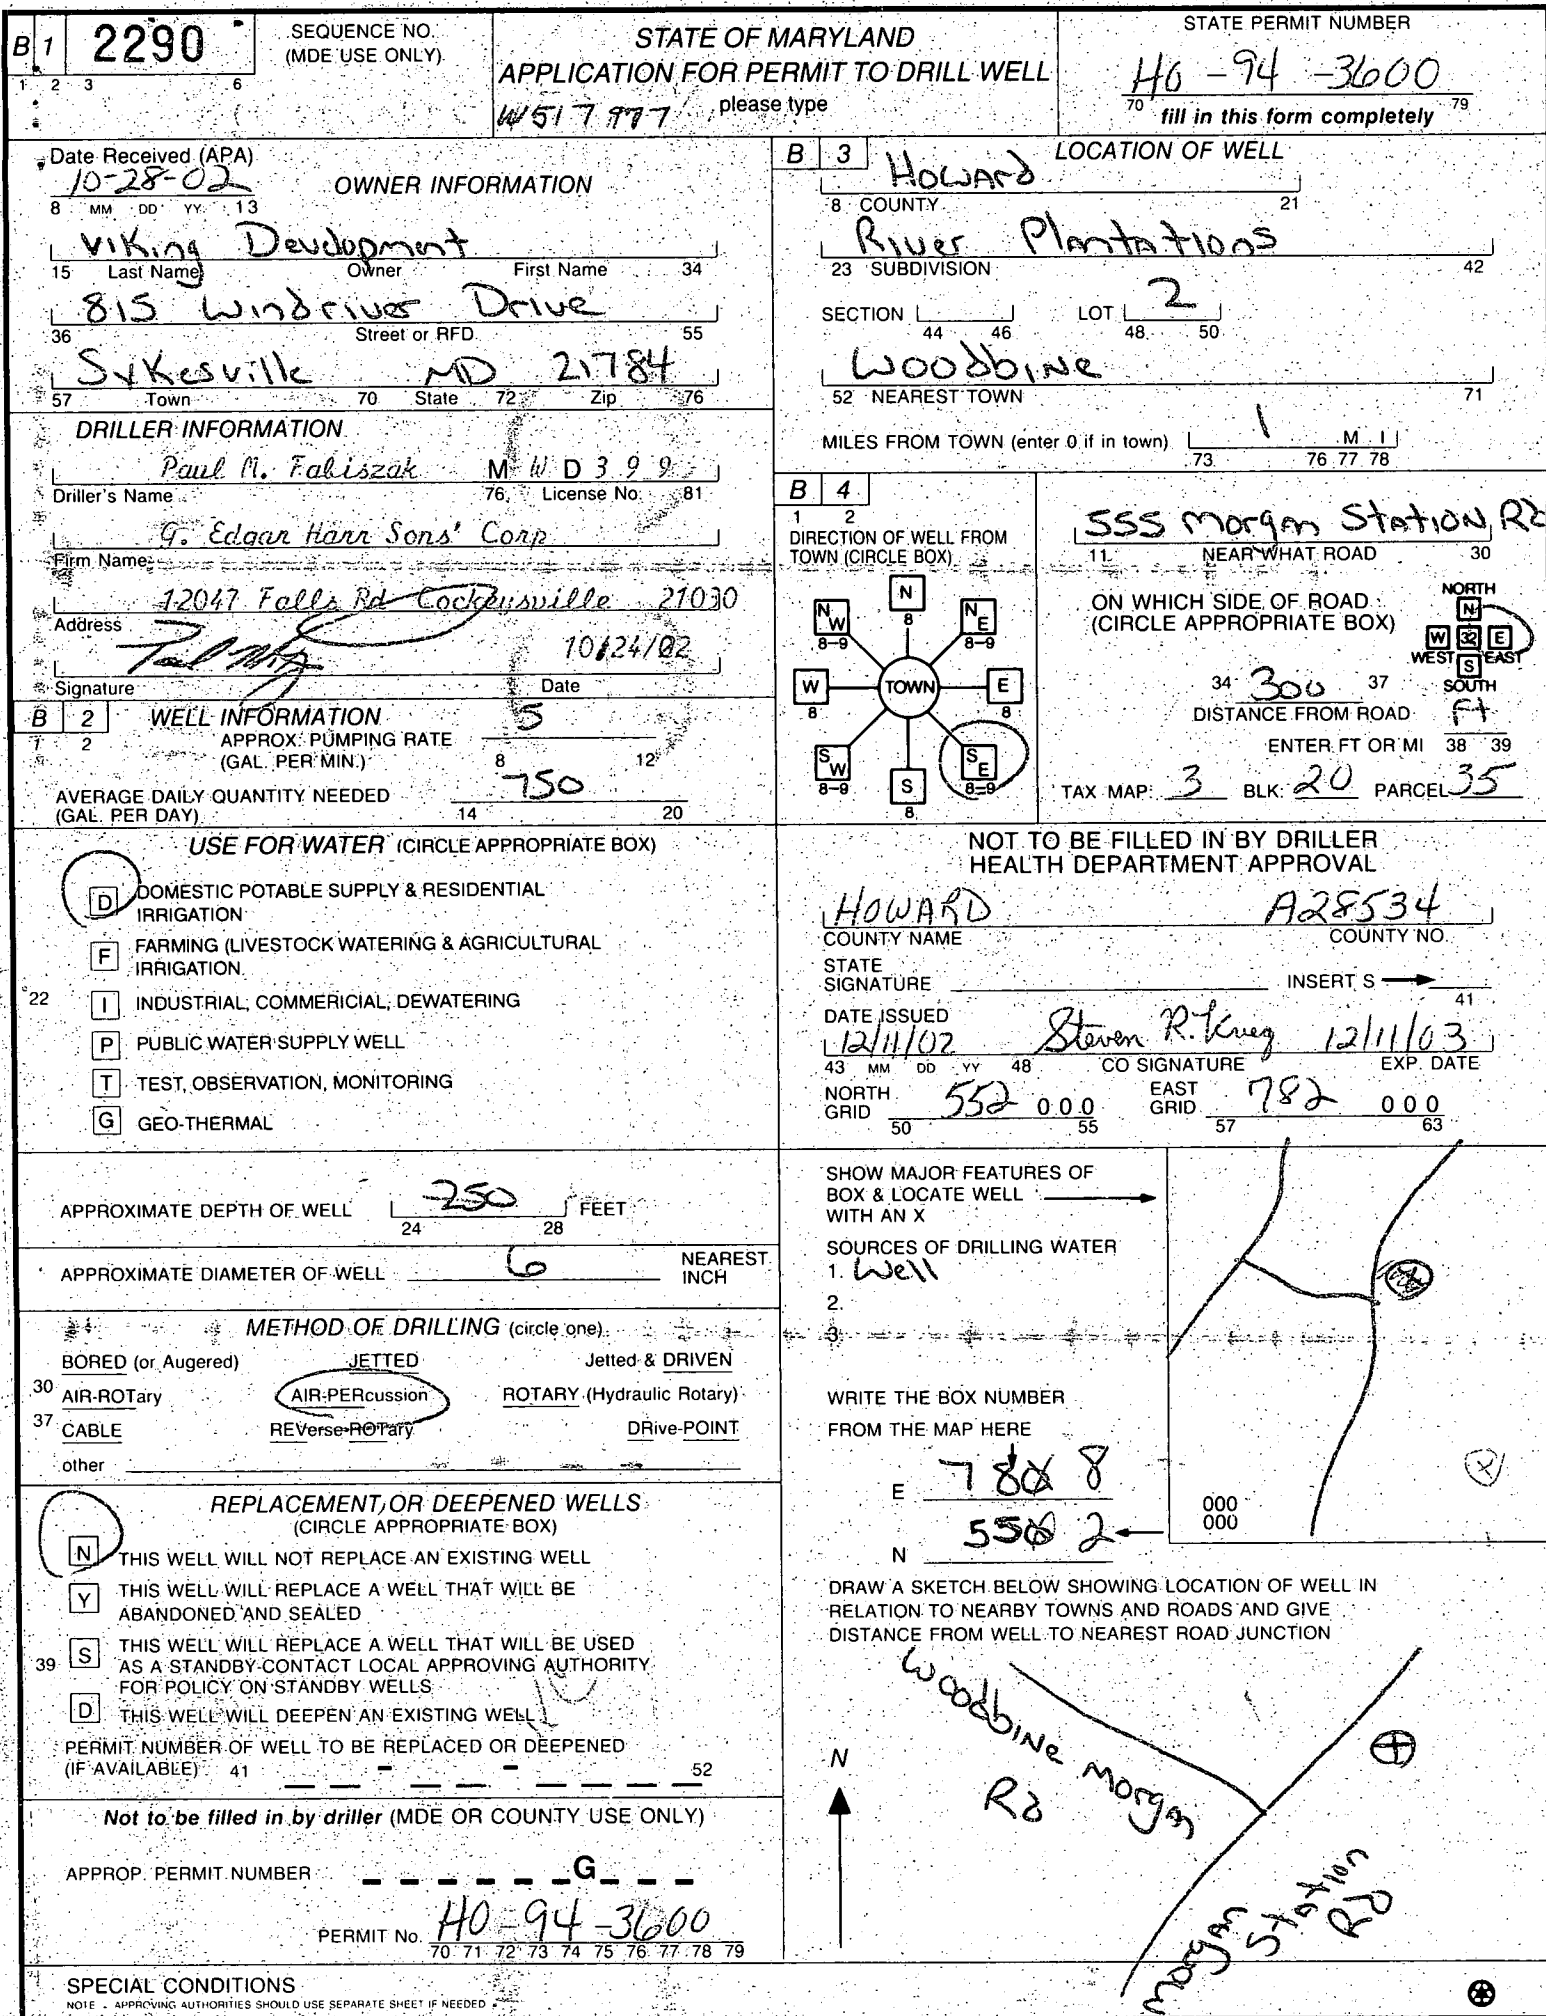 B 1 2290
1 2 3 6
SEQUENCE NO.
(MDE USE ONLY)
STATE OF MARYLAND
APPLICATION FOR PERMIT TO DRILL WELL
W517977 please type
STATE PERMIT NUMBER
HO - 94 - 3600
70 79
fill in this form completely
Date Received (APA)
10-28-02
8 MM DD YY 13
OWNER INFORMATION
Viking Development
15 Last Name Owner First Name 34
815 Windriver Drive
36 Street or RFD 55
Sykesville MD 21784
57 Town 70 State 72 Zip 76
DRILLER INFORMATION
Paul M. Fabiszak M W D 3 9 9
Driller's Name 76 License No. 81
G. Edgar Harr Sons' Corp
Firm Name
12047 Falls Rd Cockeysville 21030
Address
10/24/02
Signature Date
B 2 WELL INFORMATION
1 2
APPROX. PUMPING RATE 5
(GAL. PER MIN.) 8 12
AVERAGE DAILY QUANTITY NEEDED 750
(GAL. PER DAY) 14 20
USE FOR WATER (CIRCLE APPROPRIATE BOX)
D DOMESTIC POTABLE SUPPLY & RESIDENTIAL
IRRIGATION
F FARMING (LIVESTOCK WATERING & AGRICULTURAL
IRRIGATION
22 I INDUSTRIAL, COMMERICIAL, DEWATERING
P PUBLIC WATER SUPPLY WELL
T TEST, OBSERVATION, MONITORING
G GEO-THERMAL
APPROXIMATE DEPTH OF WELL 250 FEET
24 28
APPROXIMATE DIAMETER OF WELL 6 NEAREST
INCH
METHOD OF DRILLING (circle one)
BORED (or Augered) JETTED Jetted & DRIVEN
30 AIR-ROTary AIR-PERcussion ROTARY (Hydraulic Rotary)
37 CABLE REVerse-ROTary DRive-POINT
other
REPLACEMENT OR DEEPENED WELLS
(CIRCLE APPROPRIATE BOX)
N THIS WELL WILL NOT REPLACE AN EXISTING WELL
Y THIS WELL WILL REPLACE A WELL THAT WILL BE
ABANDONED AND SEALED
39 S THIS WELL WILL REPLACE A WELL THAT WILL BE USED
AS A STANDBY-CONTACT LOCAL APPROVING AUTHORITY
FOR POLICY ON STANDBY WELLS
D THIS WELL WILL DEEPEN AN EXISTING WELL
PERMIT NUMBER OF WELL TO BE REPLACED OR DEEPENED
(IF AVAILABLE) 41 - - 52
Not to be filled in by driller (MDE OR COUNTY USE ONLY)
APPROP. PERMIT NUMBER G
PERMIT No. HO-94-3600
70 71 72 73 74 75 76 77 78 79
SPECIAL CONDITIONS
NOTE - APPROVING AUTHORITIES SHOULD USE SEPARATE SHEET IF NEEDED
B 3 LOCATION OF WELL
Howard
8 COUNTY 21
River Plantations
23 SUBDIVISION 42
SECTION LOT 2
44 46 48 50
Woodbine
52 NEAREST TOWN 71
MILES FROM TOWN (enter 0 if in town) 1 M I
73 76 77 78
B 4
1 2
DIRECTION OF WELL FROM
TOWN (CIRCLE BOX)
N
8
NW NE
8-9 8-9
W TOWN E
8 8
SW SE
8-9 8-9
S
8
555 Morgan Station Rd
11 NEAR WHAT ROAD 30
ON WHICH SIDE OF ROAD
(CIRCLE APPROPRIATE BOX)
NORTH
N
W 32 E
WEST EAST
S
SOUTH
34 300 37
DISTANCE FROM ROAD Ft
ENTER FT OR MI 38 39
TAX MAP: 3 BLK: 20 PARCEL 35
NOT TO BE FILLED IN BY DRILLER
HEALTH DEPARTMENT APPROVAL
HOWARD A28534
COUNTY NAME COUNTY NO.
STATE
SIGNATURE INSERT S
41
DATE ISSUED
12/11/02 Steven R. Krieg 12/11/03
43 MM DD YY 48 CO SIGNATURE EXP. DATE
NORTH
GRID 552 000
50 55
EAST
GRID 782 000
57 63
SHOW MAJOR FEATURES OF
BOX & LOCATE WELL
WITH AN X
SOURCES OF DRILLING WATER
1. Well
2.
3.
WRITE THE BOX NUMBER
FROM THE MAP HERE
E 780 8
N 550 2
000
000
X
DRAW A SKETCH BELOW SHOWING LOCATION OF WELL IN
RELATION TO NEARBY TOWNS AND ROADS AND GIVE
DISTANCE FROM WELL TO NEAREST ROAD JUNCTION
Woodbine Morgan
Rd
N
Morgan
Station
Rd